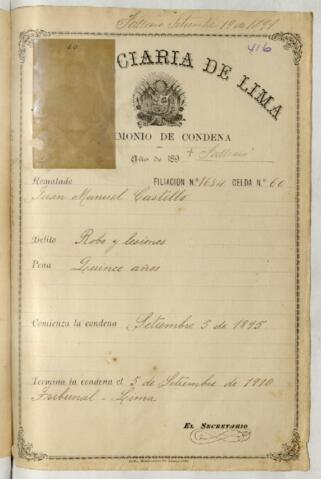 Falleció Setiembre 19 de 1898
416
60
CIARIA DE LIMA
IMONIO DE CONDENA
Año de 189 + Falleció
Rematado FILIACIÓN N.º 1654 CELDA N.º 60
Juan Manuel Castillo
Delito Robo y lesiones
Pena Quince años
Comienza la condena Setiembre 5 de 1895
Termina la condena el 5 de Setiembre de 1910
Tribunal - Lima
EL SECRETARIO